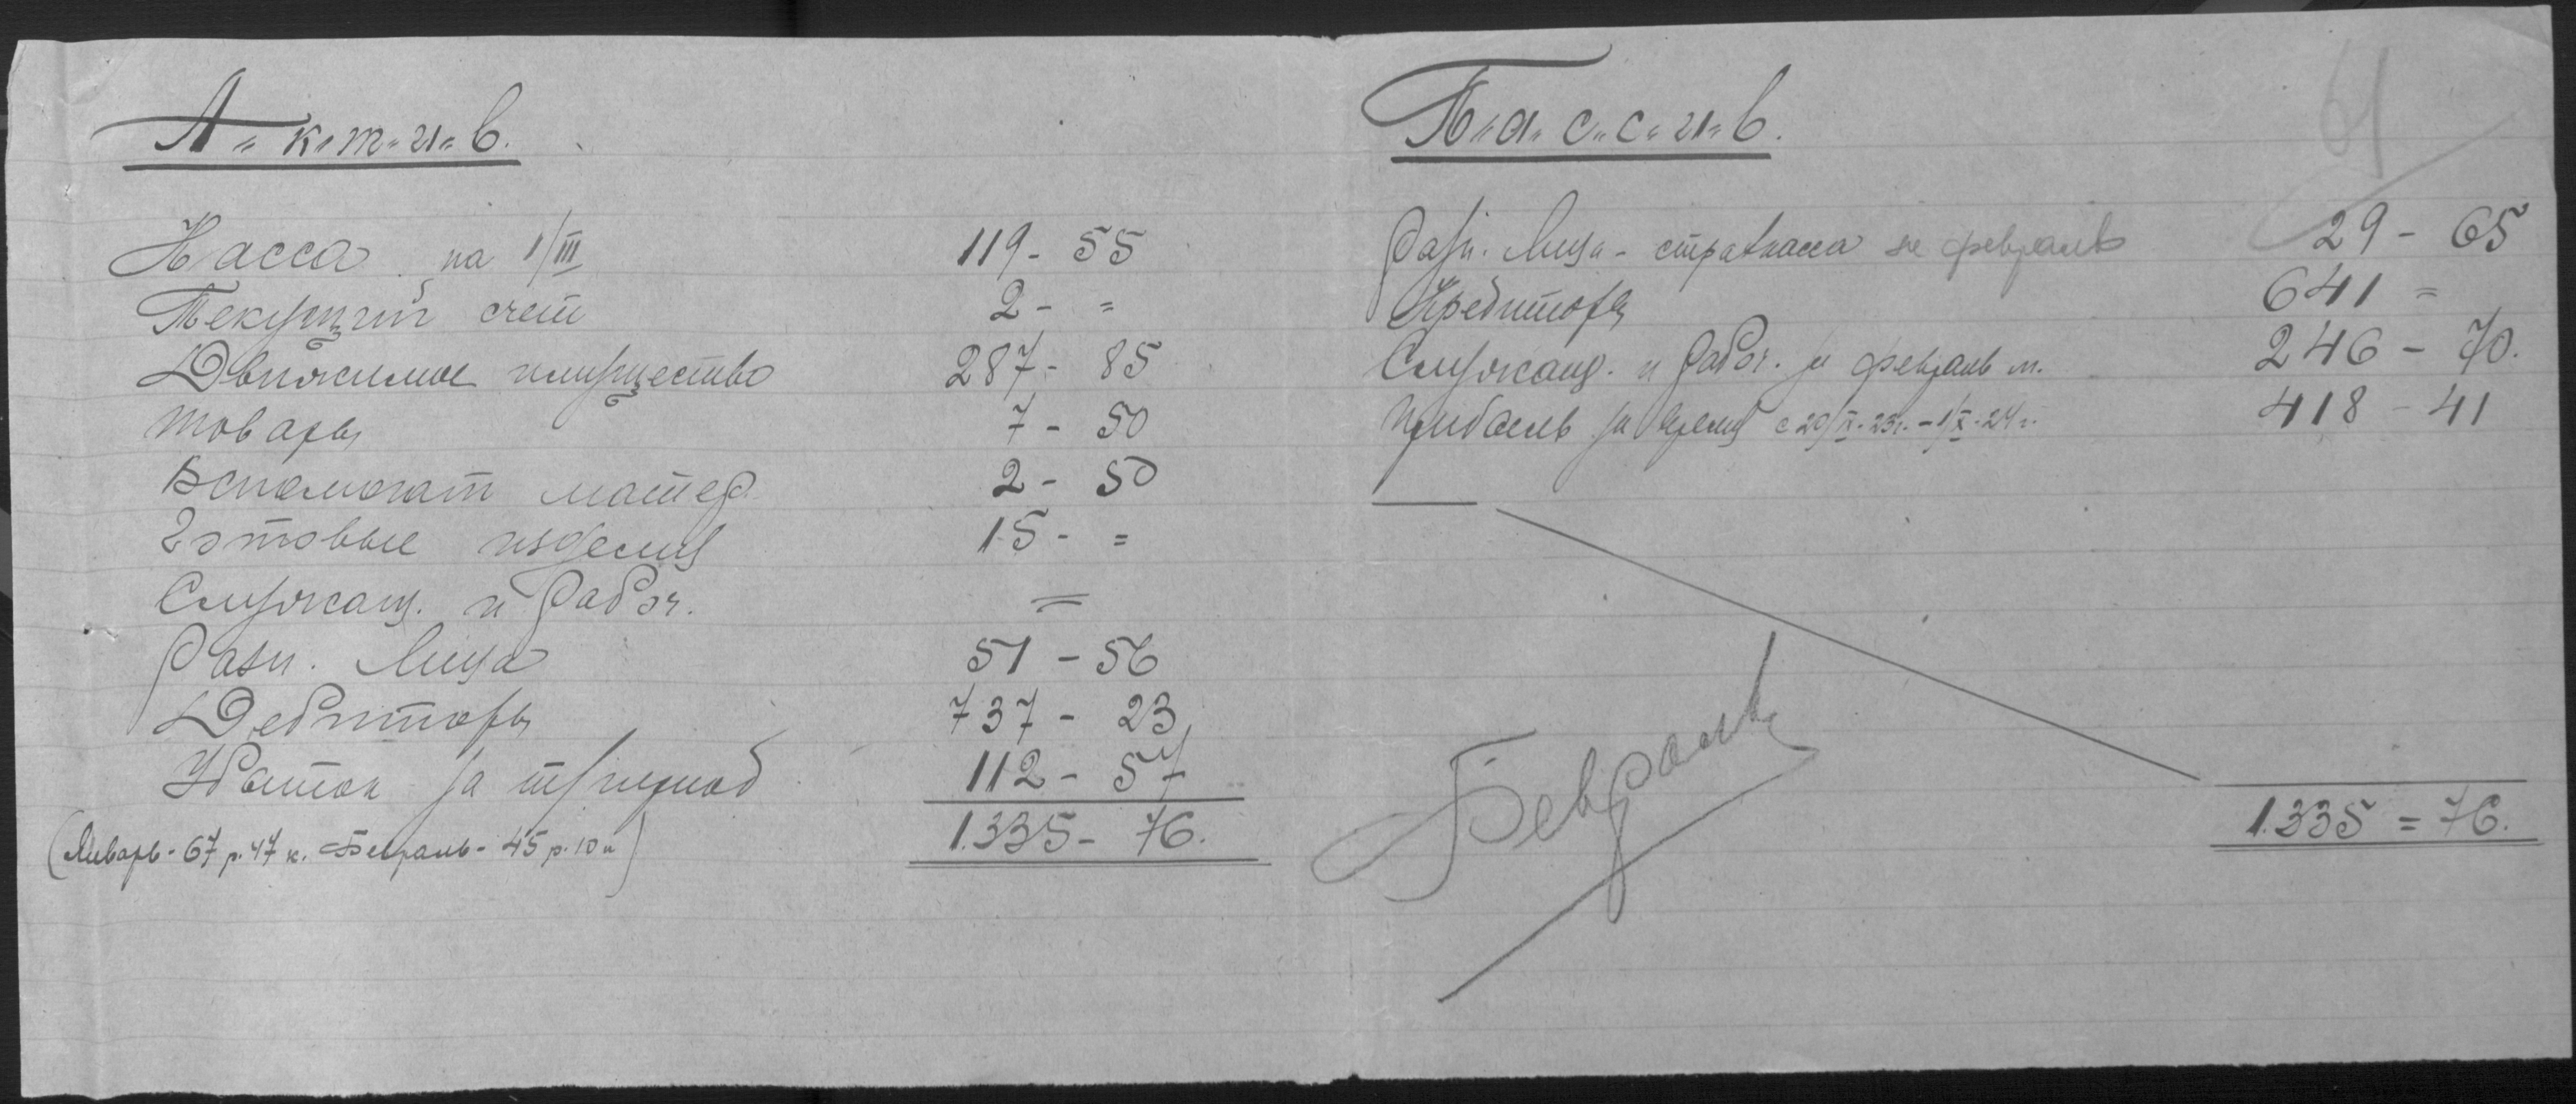 А-к-т-и-в.
Касса на 1/III 119- 55
Текущий счет 2- =
Движимое имущество 287- 85
Товары 7- 50
Вспомогат матер. 2- 50
Готовые изделия 15- =
Служащ. и рабоч. =
Разн. Лица 51 - 56
Дебиторы 737- 23
Убыток за 112- 57
(Январь- 67 р. 47 к. Февраль- 45 р. 10 к) 1.335- 76.
П-а-с-с-и-в.
61
Разн. Лица- страхкасса за февраль 29- 65
Кредиторы 641 =
Служащ. и рабоч. за февраль м. 246- 70.
Прибыль за время с 20/X-23г.-1/X-24 г. 418- 41
1.335 = 76.
Февраль